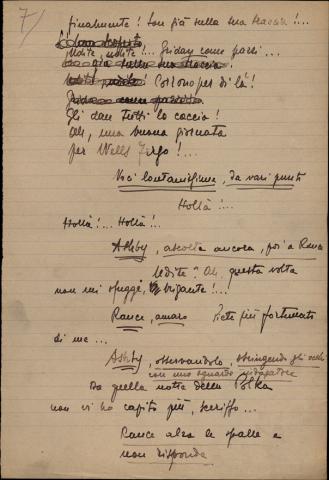 7/
finalmente! Son già sulla sua traccia!...
L'han scoperto
Udite, udite!... Gridan come pazzi...
Son già sulla sua traccia!
Udite, udite! Corrono per di là!
Gridan come pazzi!
Gli dan tutti la caccia!
Ah, una buona giornata
per Wells Fargo!...
Voci lontanissime, da vari punti
Hollà!...
Hollà!... Hollà!...
Ashby, ascolta ancora, poi a Rance
Udite? Ah, questa volta
non mi sfuggi, brigante!...
Rance, amaro Siete più fortunato
di me...
Ashby, osservandolo, stringendo gli occhi
con uno sguardo indagatore
Da quella notte della Polka
non vi ho capito più, sceriffo...
Rance alza le spalle e
non risponde